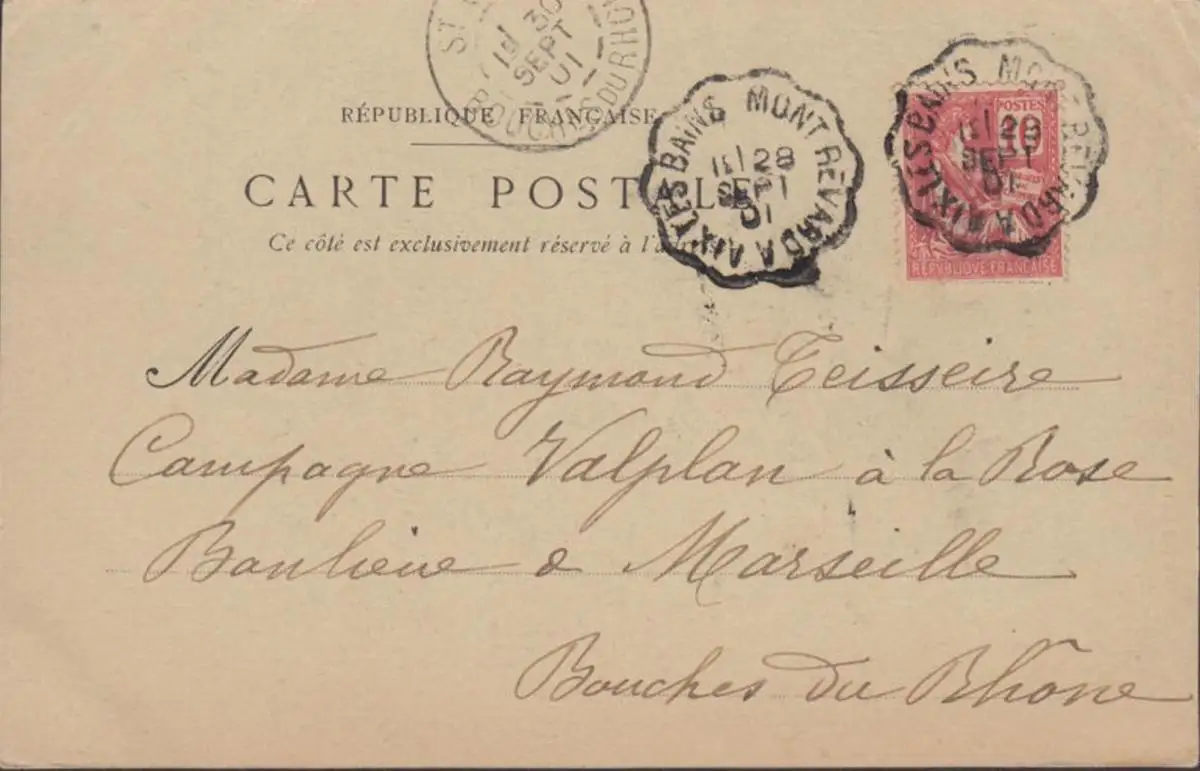 ST
1E / 30
SEPT
01
BOUCHES DU RHONE
RÉPUBLIQUE FRANÇAISE
CARTE POSTALE
Ce côté est exclusivement réservé à l'adresse
MONT RÉVARD A AIX LES BAINS
1E / 28
SEPT
01
MONT RÉVARD A AIX LES BAINS
1E / 28
SEPT
01
POSTES
10
REPVBLIQVE FRANÇAISE
Madame Raymond Teisseire
Campagne Valplan à la Rose
Banlieue de Marseille
Bouches du Rhône